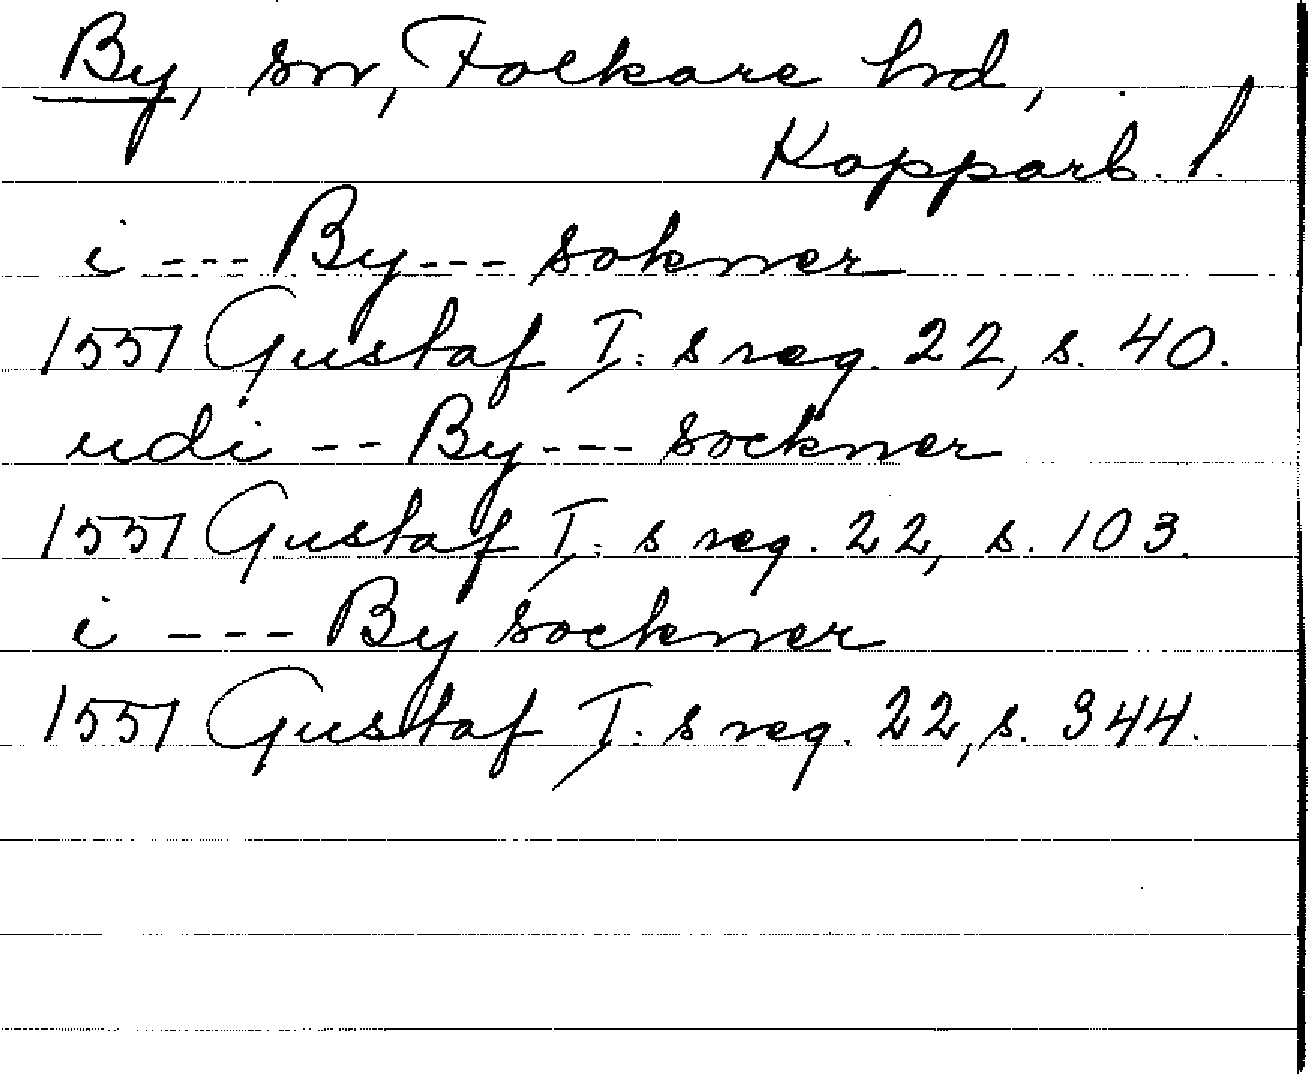 By, sn, Folkare hd,
Kopparb. l.
i --- By --- sokner
1551 Gustaf I:s reg. 22, s. 40.
udi -- By --- sockner
1551 Gustaf I:s reg. 22, s. 103.
i --- By sockner
1551 Gustaf I:s reg. 22, s. 344.